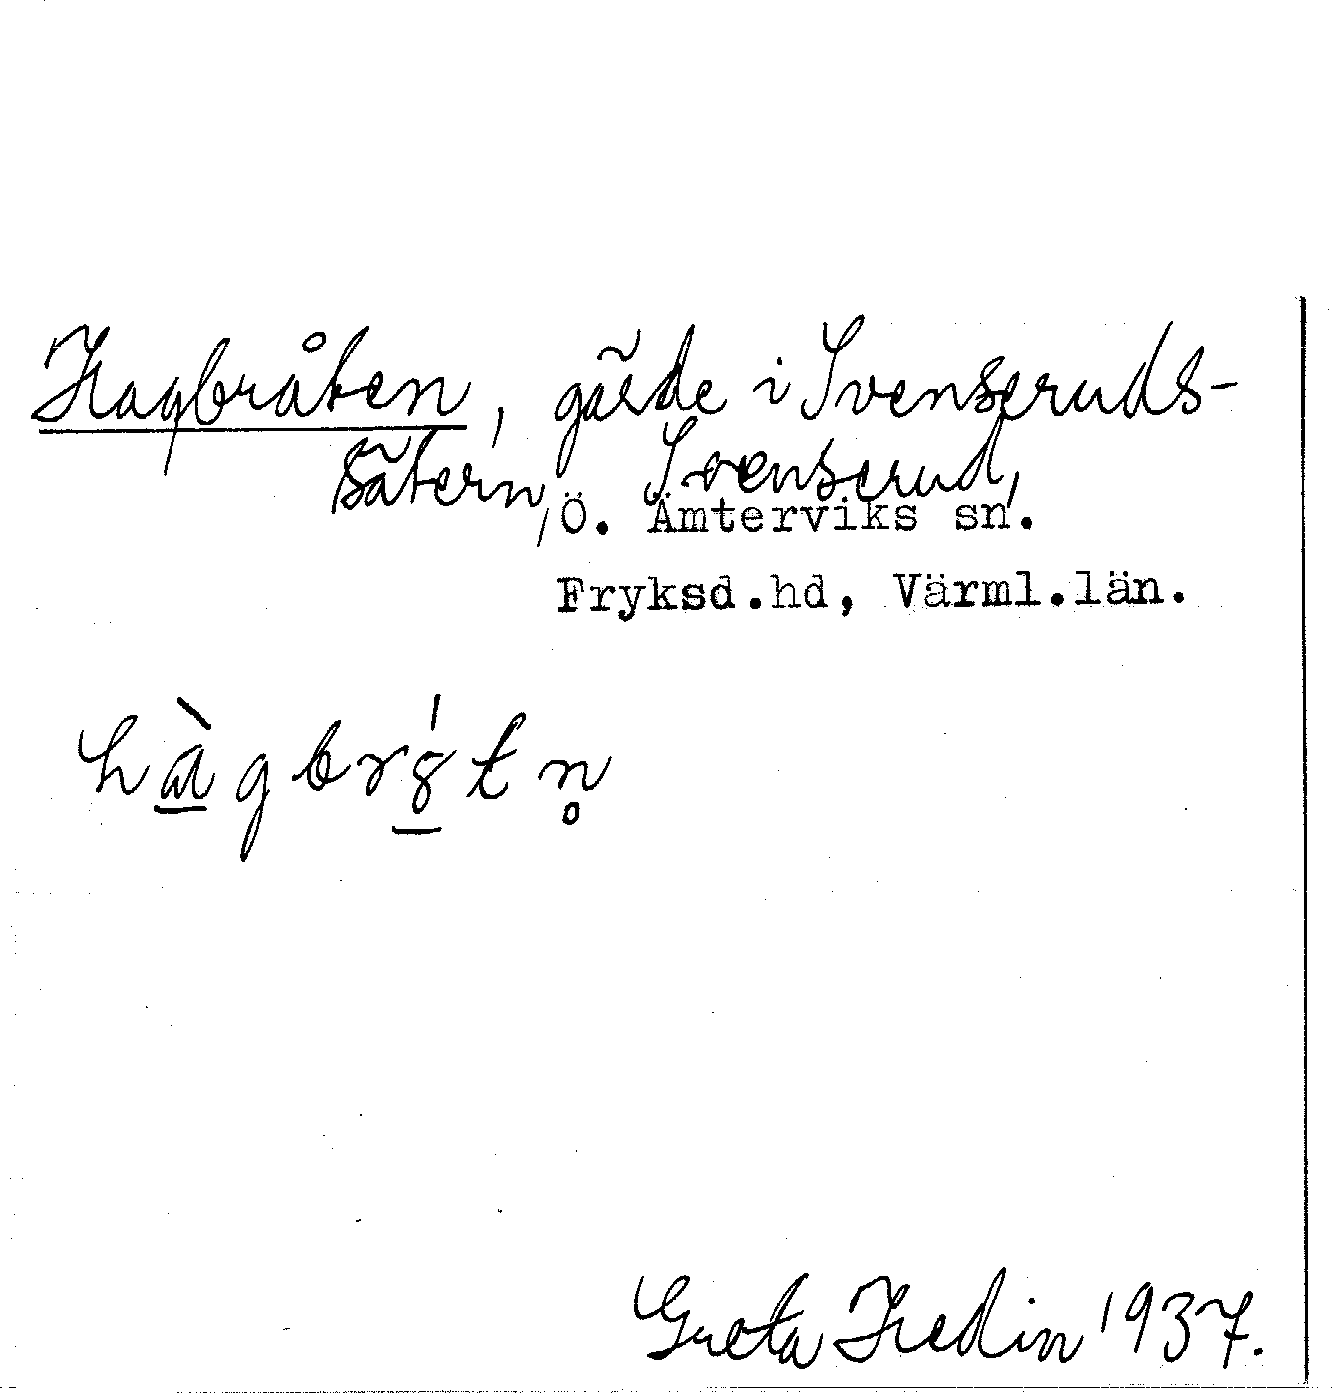 Hagbråten, gärde i Svenseruds-
sätern, Svenserud,
Ö. Ämterviks sn.
Fryksd.hd, Värml.län.
hàgbrǵtn̥
Greta Hedin 1937.